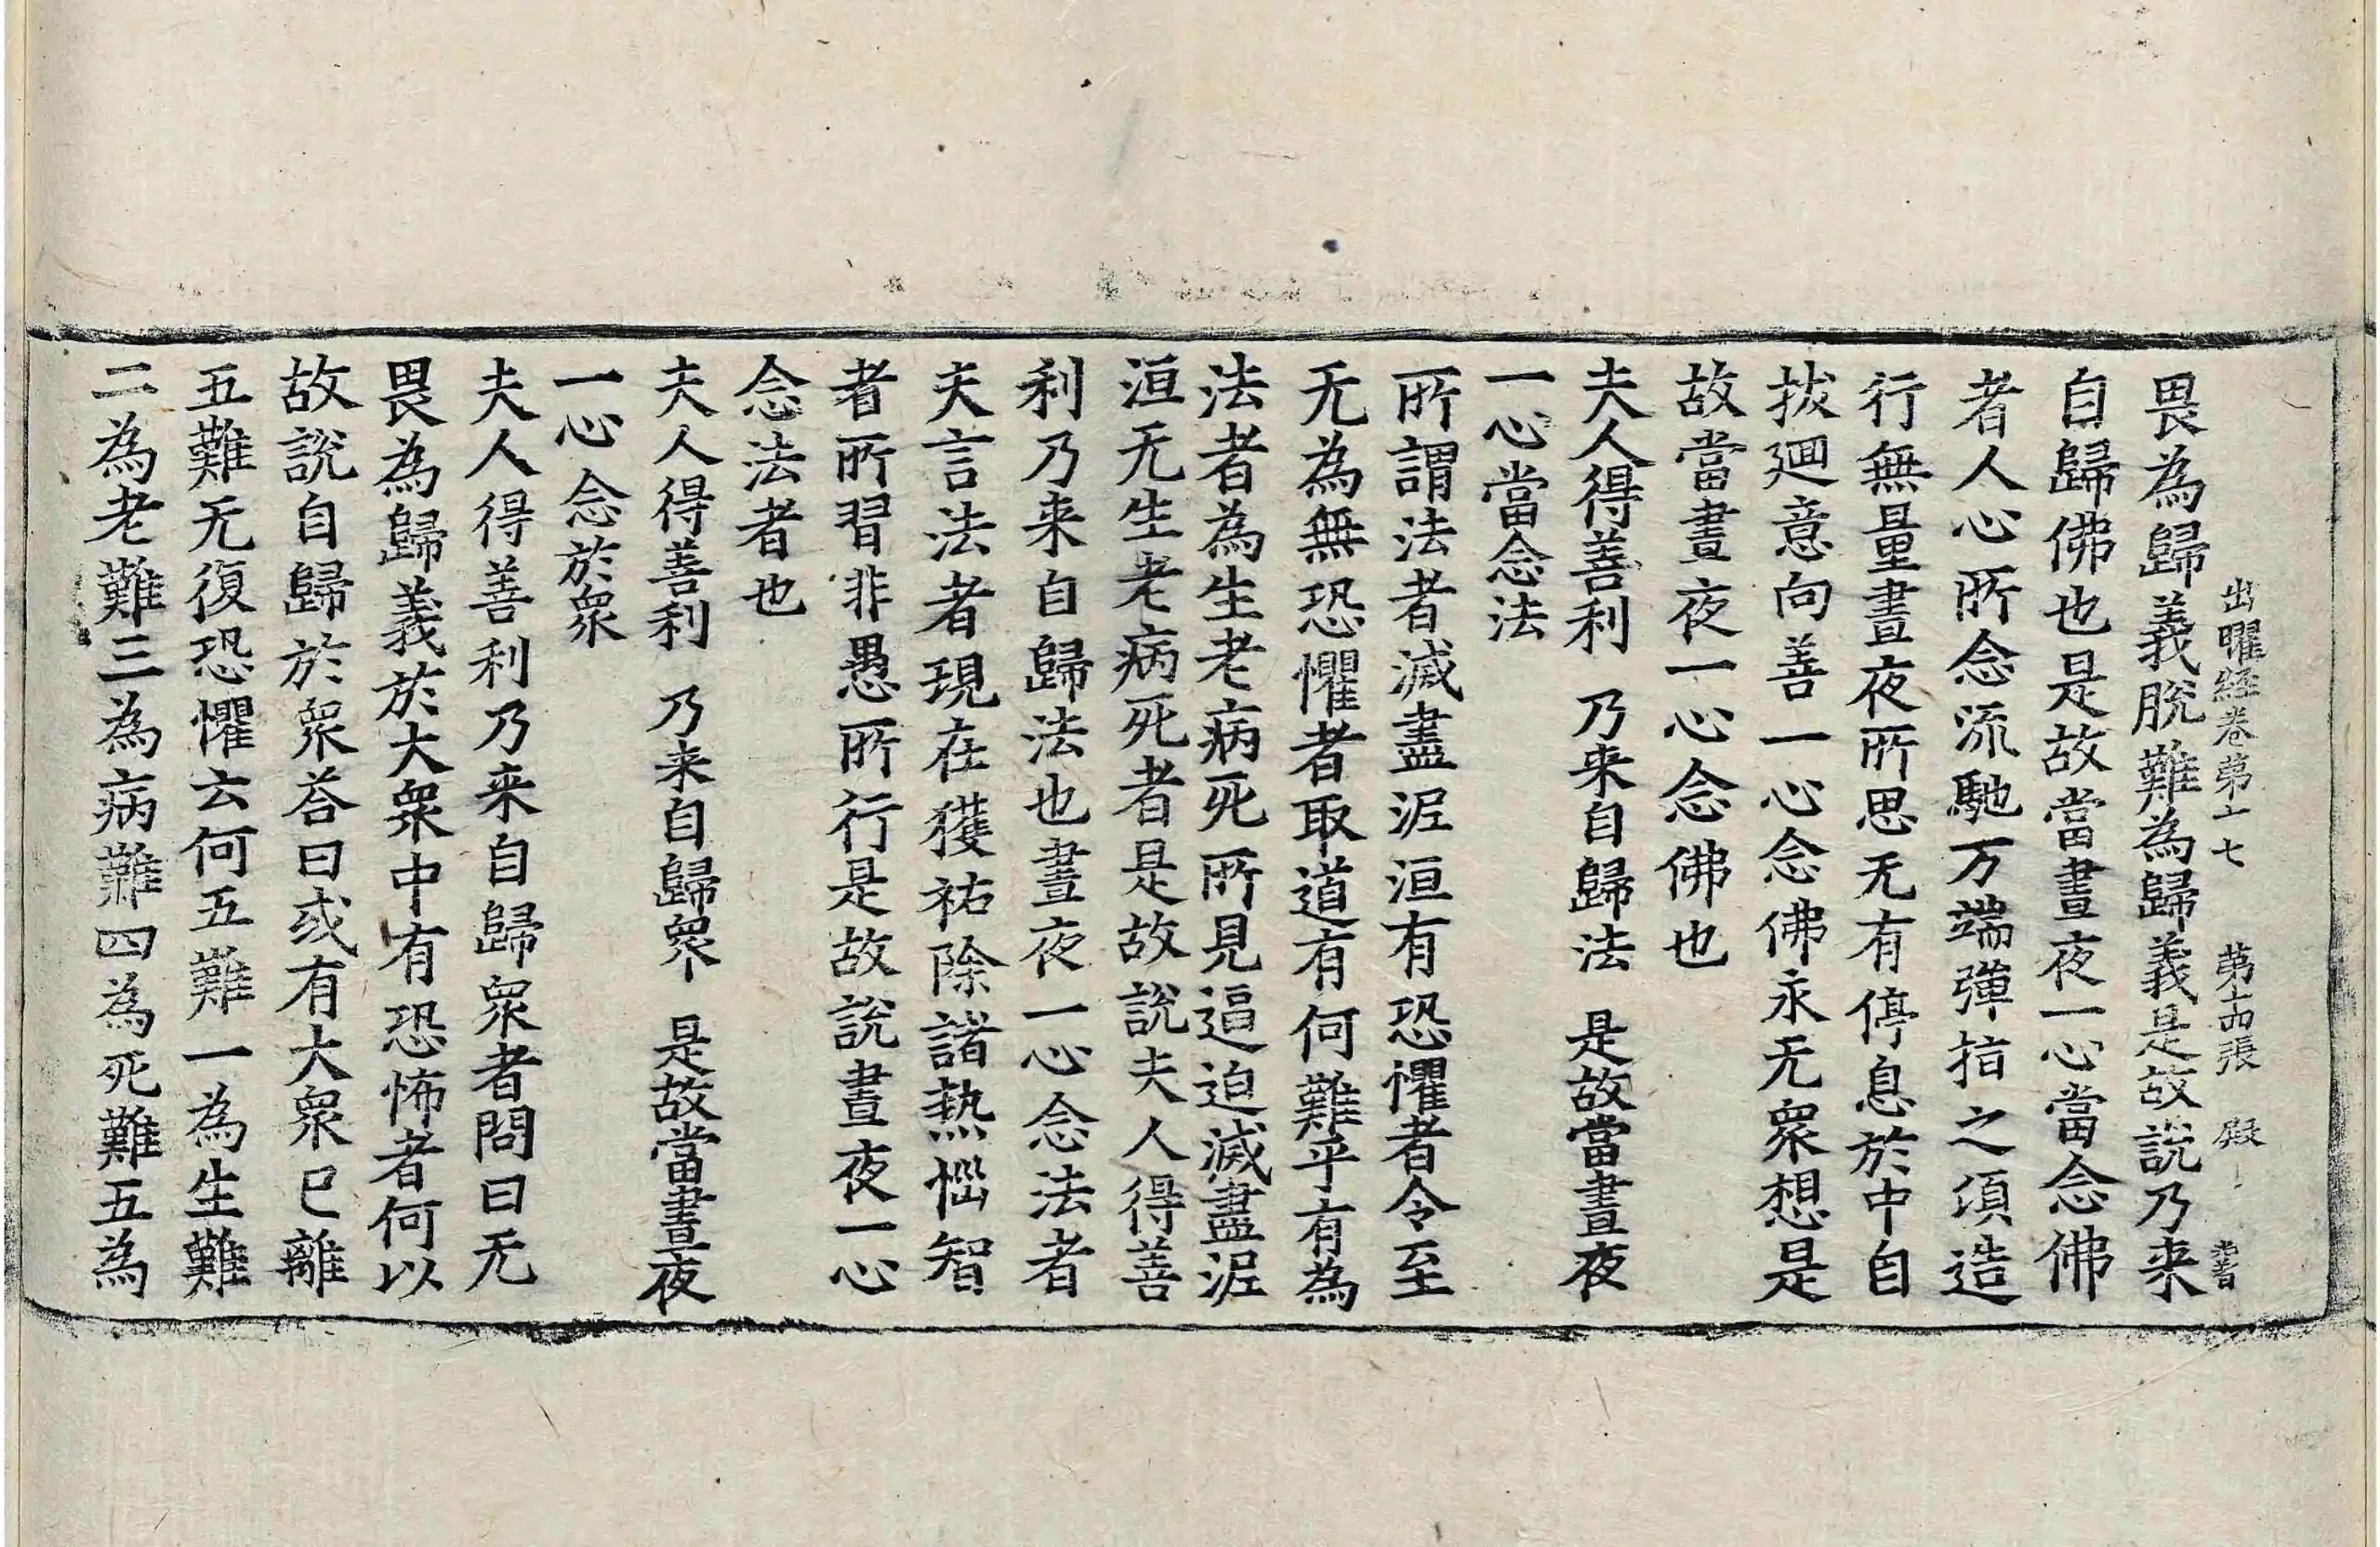 出曜経卷苐十七　苐十四張　殿
畏為歸義脫難為歸義是故說乃来
自歸佛也是故當晝夜一心當念佛
者人心所念流馳万端彈指之湏造
行無量晝夜所思无有停息於中自
拔廻意向善一心念佛永无衆想是
故當晝夜一心念佛也
夫人得善利　乃来自歸法　是故當晝夜
一心當念法
所謂法者滅盡泥洹有恐懼者令至
无為無恐懼者取道有何難乎有為
法者為生老病死所見逼迫滅盡泥
洹无生老病死者是故說夫人得善
利乃来自歸法也晝夜一心念法者
夫言法者現在獲祐除諸热惱智
者所習非愚所行是故說晝夜一心
念法者也
夫人得善利　乃来自歸衆　是故當晝夜
一心念於衆
夫人得善利乃来自歸衆者問曰无
畏為歸義於大衆中有恐怖者何以
故說自歸於衆荅曰或有大衆已離
五難无復恐懼云何五難一為生難
二為老難三為病難四為死難五為